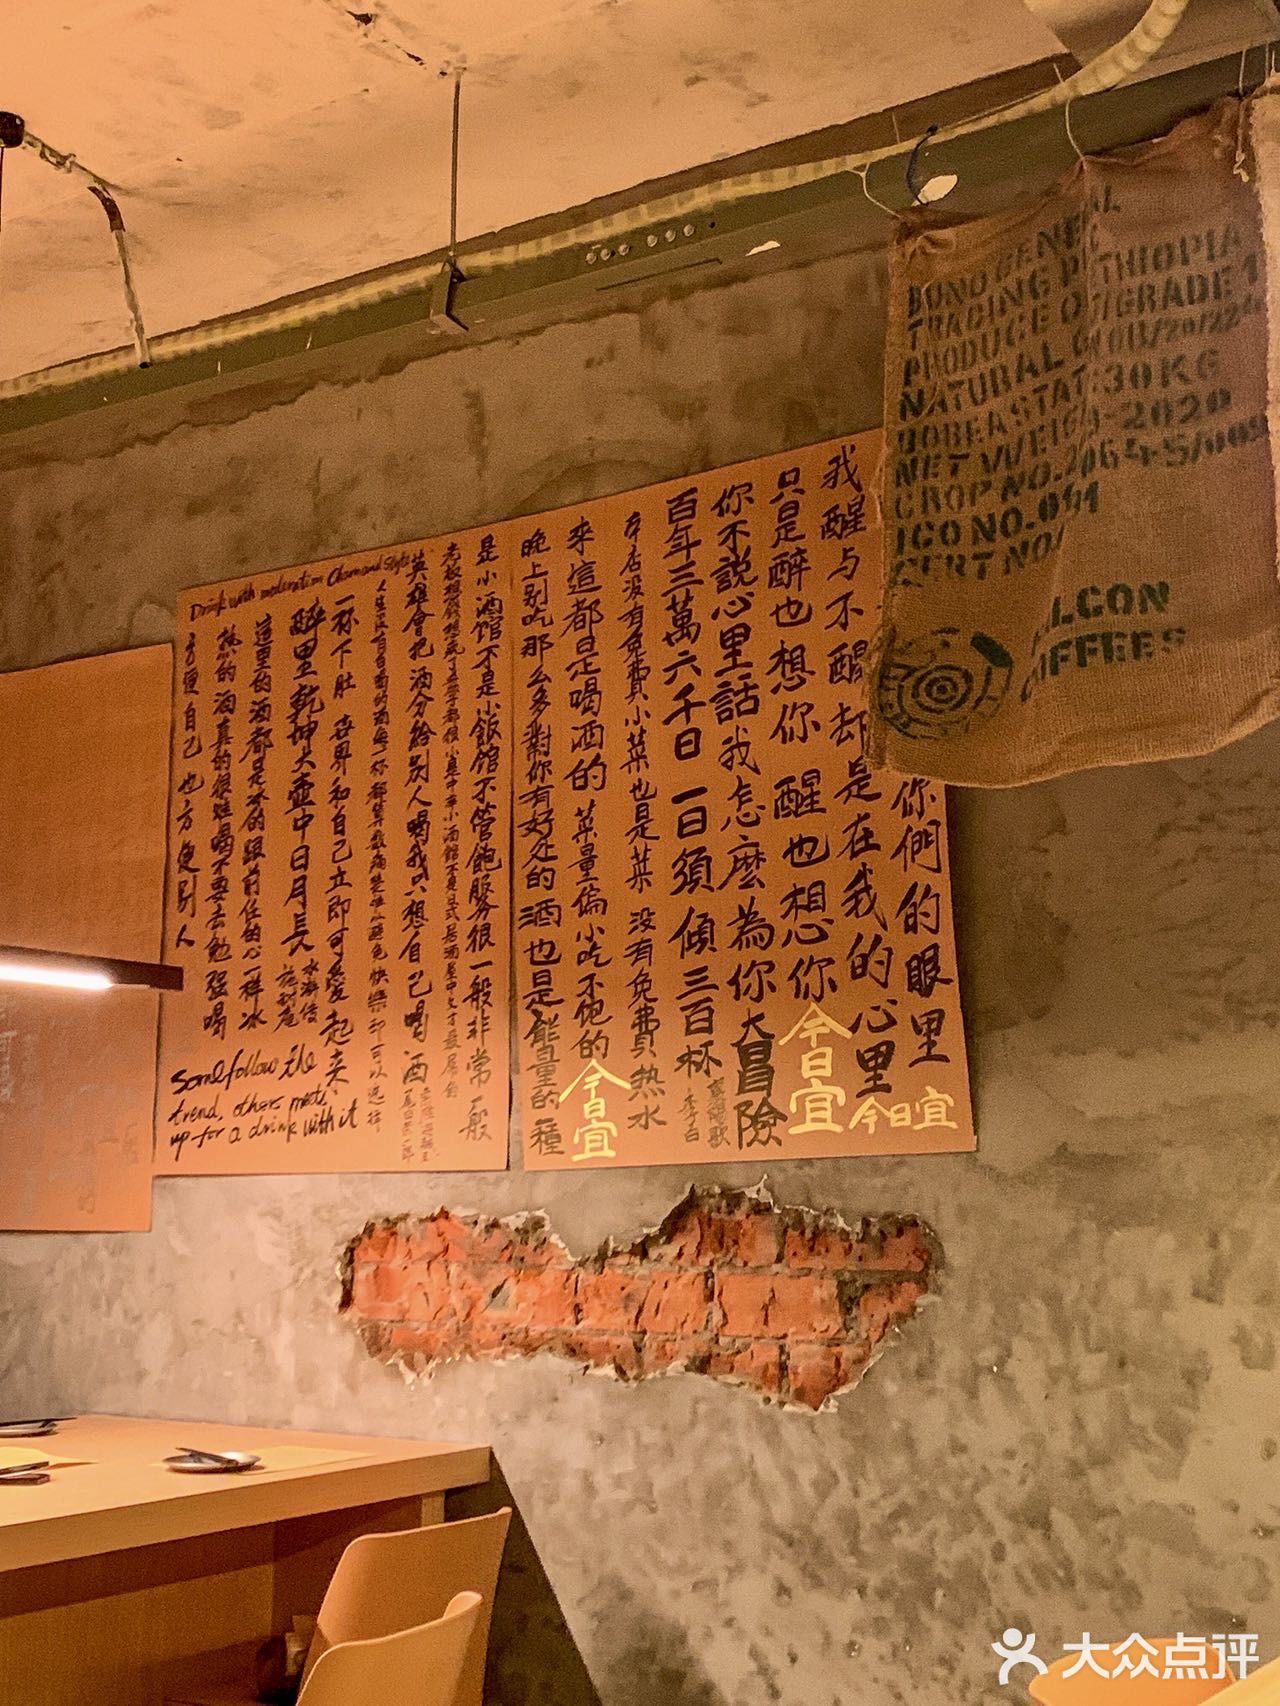 你們的眼里
我醒与不醒却是在我的心里
今日宜
只是醉也想你 醒也想你
今日宜
你不說心里話我怎麼為你大冒險
百年三萬六千日 一日須傾三百杯
襄陽歌
李白
本店没有免費小菜也是菜 没有免費热水
來這都是喝酒的 菜量偏小吃不飽的
今日宜
晚上别吃那么多對你有好处的酒也是能量的一種
是小酒馆不是小飯馆不管飽服务很一般非常一般
英雄會把酒分給别人喝我只想自己喝酒
一杯下肚 世界和自己立即可愛起来
醉里乾坤大壶中日月長
水滸传
施耐庵
這里的酒都是冰的跟前任的心一样冰
热的酒真的很难喝不要去勉强喝
方便自己也方便别人
Drink with moderation Charm and Style
Some follow the
trend, others meet
up for a drink with it
BUNO GENERAL
TRADING P
ETHIOPIA
PRODUCE O
GRADE 1
NATURAL G
30KG
NET WEIG
2020
CROP NO.
ICO NO. 
CERT NO/
FALCON
COFFEES
大众点评